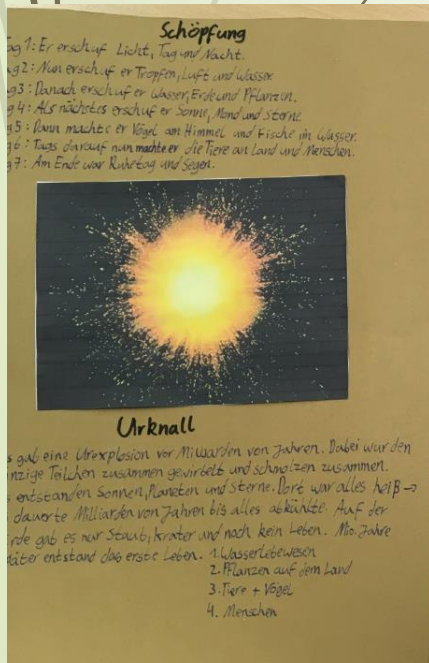 Schöpfung
ag 1: Er erschuf Licht, Tag und Nacht.
ag 2: Nun erschuf er Tropfen, Luft und Wasser
ag 3: Danach erschuf er Wasser, Erde und Pflanzen.
g 4: Als nächstes erschuf er Sonne, Mond und Sterne.
g 5: Dann machte er Vögel am Himmel und Fische im Wasser.
g 6: Tags darauf nun machte er die Tiere an Land und Menschen.
g 7: Am Ende war Ruhetag und Segen.
Urknall
s gab eine Urexplosion vor Milliarden von Jahren. Dabei wurden
inzige Teilchen zusammen gewirbelt und schmolzen zusammen.
s entstanden Sonnen, Planeten und Sterne. Dort war alles heiß →
dauerte Milliarden von Jahren bis alles abkühlte. Auf der
rde gab es nur Staub, Krater und noch kein Leben. Mio. Jahre
päter entstand das erste Leben. 1. Wasserlebewesen
2. Pflanzen auf dem Land
3. Tiere + Vögel
4. Menschen